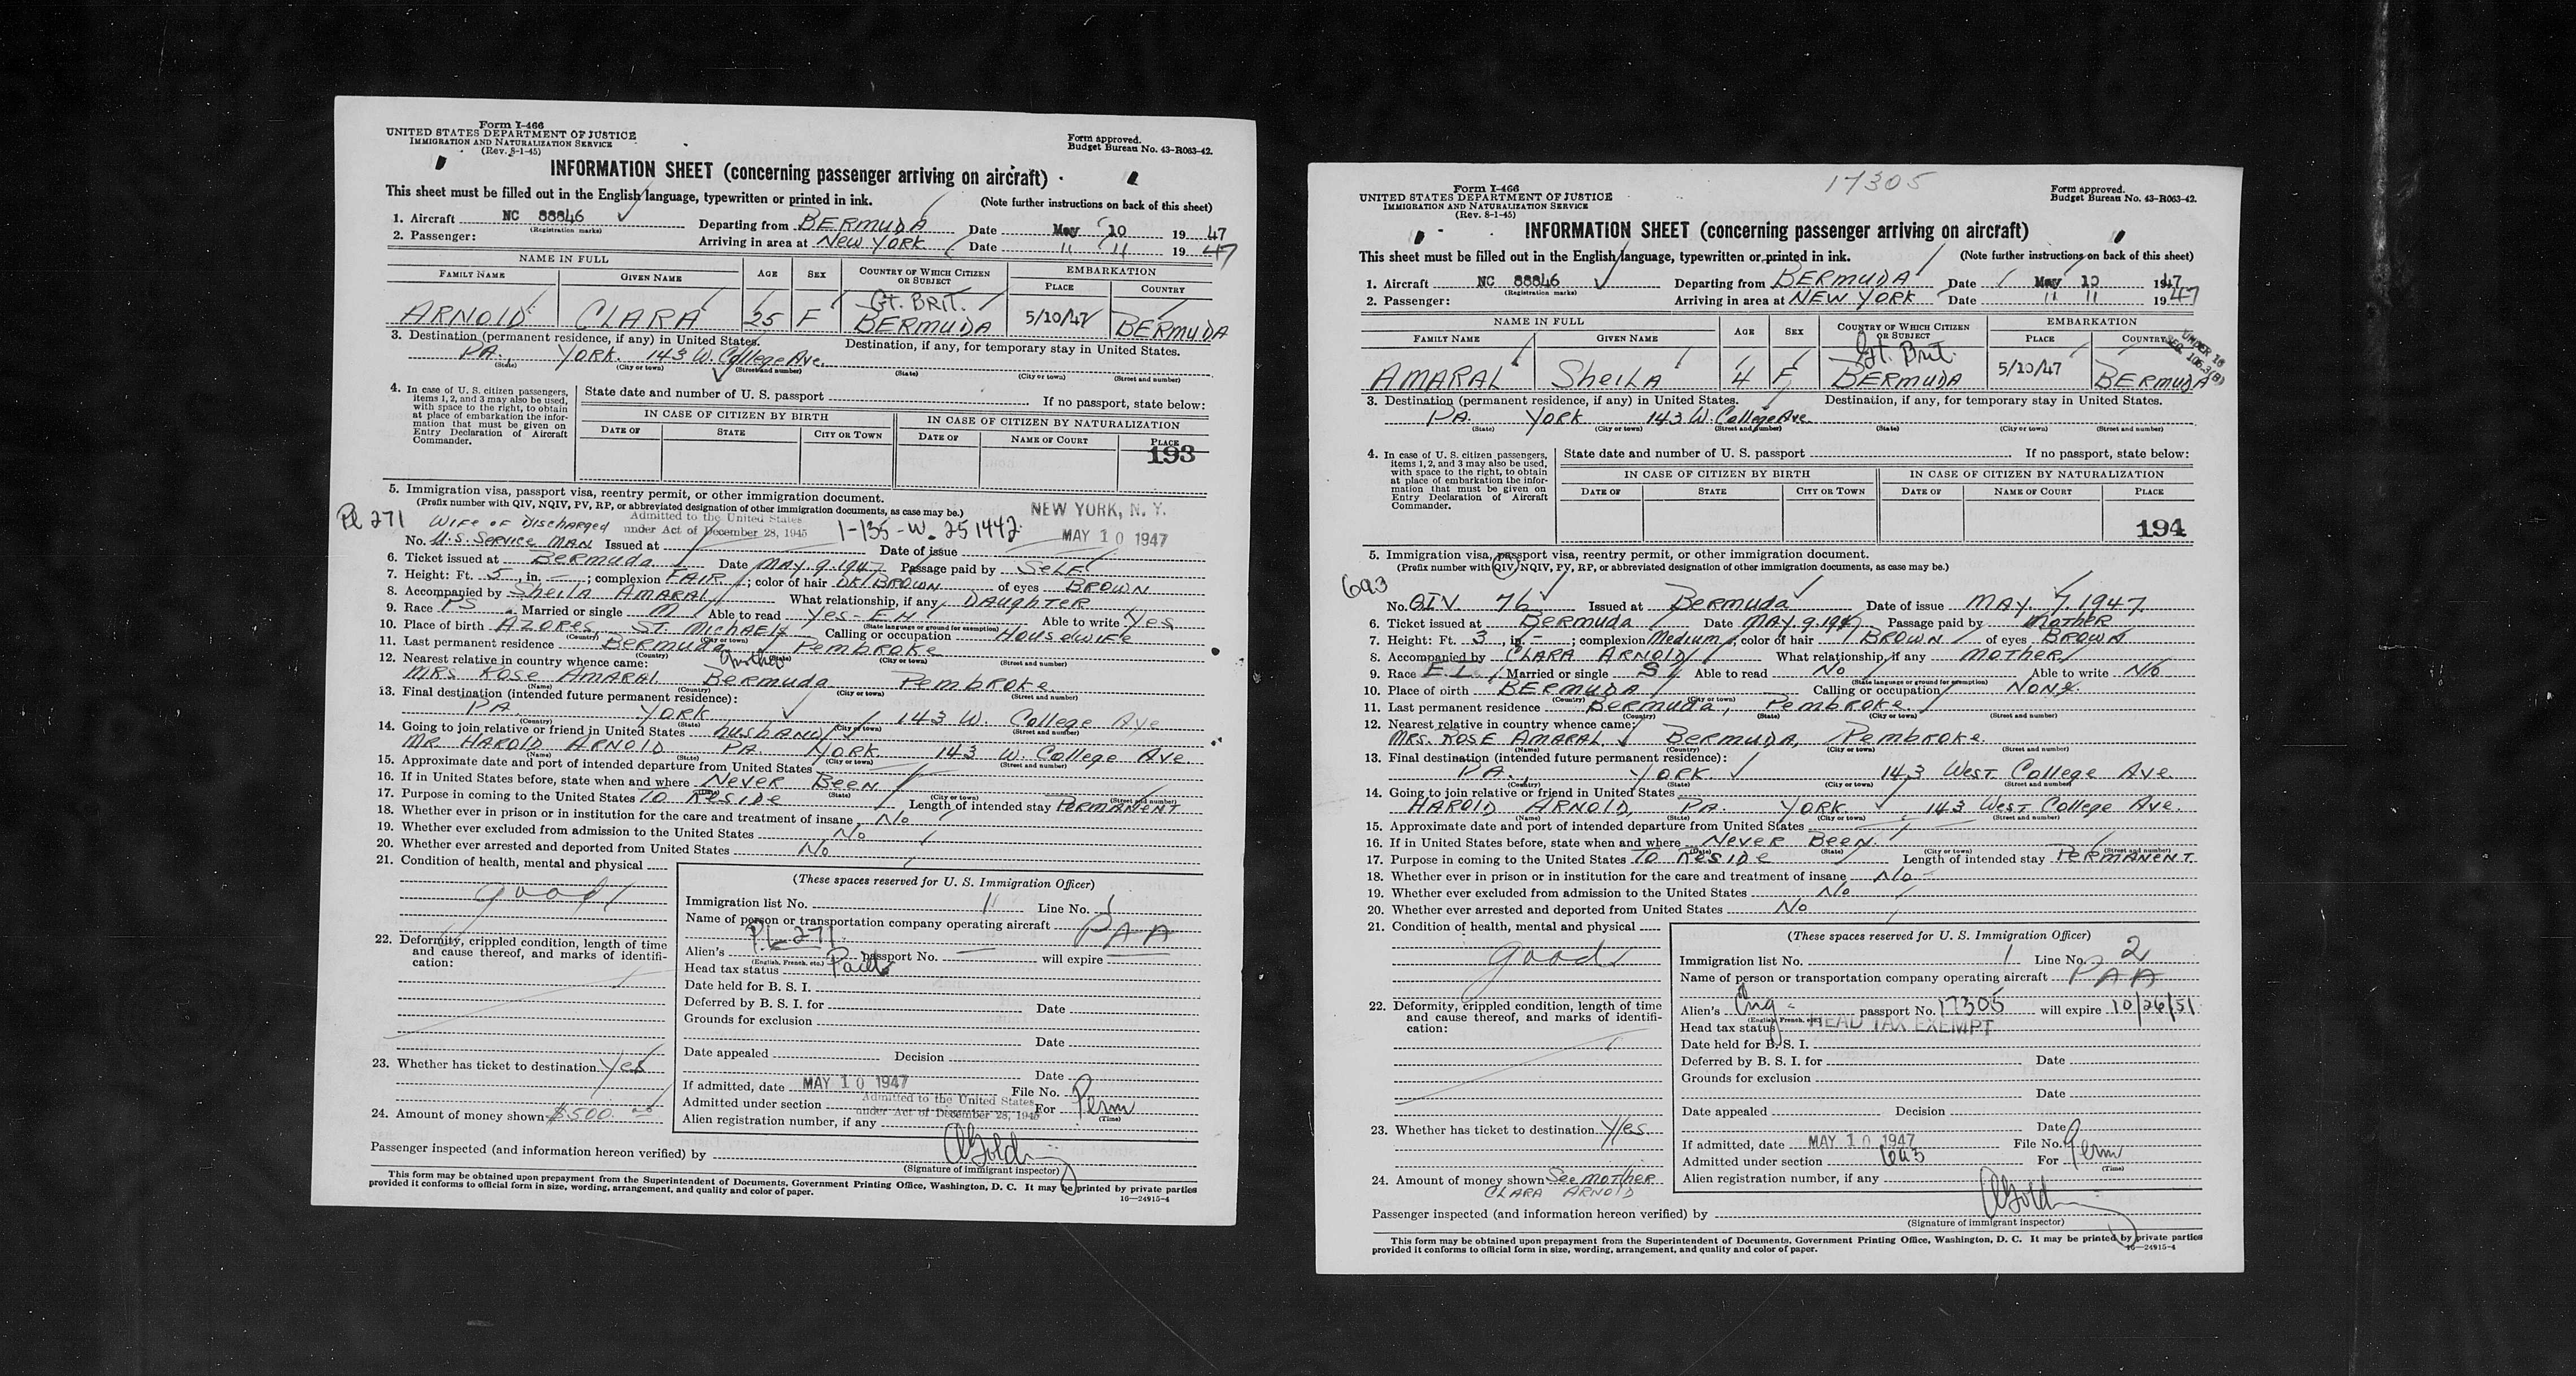 Form I-466
UNITED STATES DEPARTMENT OF JUSTICE
IMMIGRATION AND NATURALIZATION SERVICE
(Rev. 8-1-45)
Form approved.
Budget Bureau No. 43-R063-42.
INFORMATION SHEET (concerning passenger arriving on aircraft)
This sheet must be filled out in the English language, typewritten or printed in ink.
(Note further instructions on back of this sheet)
1. Aircraft NC 88846 Departing from BERMUDA Date May 10 1947
(Registration marks)
2. Passenger: Arriving in area at NEW YORK Date " 11 1947
NAME IN FULL AGE SEX COUNTRY OF WHICH CITIZEN OR SUBJECT EMBARKATION
FAMILY NAME GIVEN NAME PLACE COUNTRY
Gt. BRIT.
ARNOLD CLARA 25 F BERMUDA 5/10/47 BERMUDA
3. Destination (permanent residence, if any) in United States. Destination, if any, for temporary stay in United States.
PA. YORK. 143 W. College Ave.
(State) (City or town) (Street and number) (State) (City or town) (Street and number)
4. In case of U. S. citizen passengers, items 1, 2, and 3 may also be used, with space to the right, to obtain at place of embarkation the information that must be given on Entry Declaration of Aircraft Commander.
State date and number of U. S. passport If no passport, state below:
IN CASE OF CITIZEN BY BIRTH IN CASE OF CITIZEN BY NATURALIZATION
DATE OF STATE CITY OR TOWN DATE OF NAME OF COURT PLACE
193
5. Immigration visa, passport visa, reentry permit, or other immigration document.
(Prefix number with QIV, NQIV, PV, RP, or abbreviated designation of other immigration documents, as case may be.)
NEW YORK, N. Y.
PL 271 WIFE OF DISCHARGED Admitted to the United States under Act of December 28, 1945 1-135-W. 251442 MAY 10 1947
No. U.S. SERVICE MAN Issued at Date of issue
6. Ticket issued at BERMUDA Date MAY 9. 1947 Passage paid by SELF
7. Height: Ft. 5, in. -; complexion FAIR; color of hair DK/BROWN of eyes BROWN
8. Accompanied by Sheila AMARAL What relationship, if any DAUGHTER
9. Race PS Married or single M Able to read Yes - EH Able to write Yes
(State language or ground for exemption)
10. Place of birth AZORES, ST. MICHAELS Calling or occupation HOUSEWIFE
(Country) (City or town)
11. Last permanent residence BERMUDA PEMBROKE
(Country) (State) (City or town) (Street and number)
12. Nearest relative in country whence came: mother
MRS ROSE AMARAL BERMUDA PEMBROKE
(Name) (Country) (City or town) (Street and number)
13. Final destination (intended future permanent residence):
PA. YORK 143 W. College Ave
(Country) (State) (City or town) (Street and number)
14. Going to join relative or friend in United States husband
MR HAROLD ARNOLD PA. YORK 143 W. College Ave
(Name) (State) (City or town) (Street and number)
15. Approximate date and port of intended departure from United States
16. If in United States before, state when and where NEVER BEEN
(Date) (State) (City or town) (Street and number)
17. Purpose in coming to the United States TO RESIDE Length of intended stay PERMANENT
18. Whether ever in prison or in institution for the care and treatment of insane No
19. Whether ever excluded from admission to the United States No
20. Whether ever arrested and deported from United States No
21. Condition of health, mental and physical
good
22. Deformity, crippled condition, length of time and cause thereof, and marks of identification:
23. Whether has ticket to destination Yes
24. Amount of money shown $500.00
(These spaces reserved for U. S. Immigration Officer)
Immigration list No. 1 Line No. 1
Name of person or transportation company operating aircraft PAA
PL-271
Alien's passport No. will expire
(English, French, etc.)
Head tax status
Date held for B. S. I.
Deferred by B. S. I. for Date
Grounds for exclusion
Date
Date appealed Decision
Date
If admitted, date MAY 10 1947 File No.
Admitted under section Admitted to the United States under Act of December 28, 1945 For Perm
(Time)
Alien registration number, if any
Passenger inspected (and information hereon verified) by
(Signature of immigrant inspector)
This form may be obtained upon prepayment from the Superintendent of Documents, Government Printing Office, Washington, D. C. It may be printed by private parties
provided it conforms to official form in size, wording, arrangement, and quality and color of paper.
16—24915-4
17305
Form I-466
UNITED STATES DEPARTMENT OF JUSTICE
IMMIGRATION AND NATURALIZATION SERVICE
(Rev. 8-1-45)
Form approved.
Budget Bureau No. 43-R063-42.
INFORMATION SHEET (concerning passenger arriving on aircraft)
This sheet must be filled out in the English language, typewritten or printed in ink.
(Note further instructions on back of this sheet)
1. Aircraft NC 88846 Departing from BERMUDA Date May 10 1947
(Registration marks)
2. Passenger: Arriving in area at NEW YORK Date " 11 1947
NAME IN FULL AGE SEX COUNTRY OF WHICH CITIZEN OR SUBJECT EMBARKATION
FAMILY NAME GIVEN NAME PLACE COUNTRY
UNDER 16
SEC. 105.3(B)
Gt. Brit.
AMARAL SheiLA 4 F BERMUDA 5/10/47 BERMUDA
3. Destination (permanent residence, if any) in United States. Destination, if any, for temporary stay in United States.
PA. YORK 143 W. College Ave
(State) (City or town) (Street and number) (State) (City or town) (Street and number)
4. In case of U. S. citizen passengers, items 1, 2, and 3 may also be used, with space to the right, to obtain at place of embarkation the information that must be given on Entry Declaration of Aircraft Commander.
State date and number of U. S. passport If no passport, state below:
IN CASE OF CITIZEN BY BIRTH IN CASE OF CITIZEN BY NATURALIZATION
DATE OF STATE CITY OR TOWN DATE OF NAME OF COURT PLACE
194
5. Immigration visa, passport visa, reentry permit, or other immigration document.
(Prefix number with QIV, NQIV, PV, RP, or abbreviated designation of other immigration documents, as case may be.)
6a3
No. QIV 76 Issued at Bermuda Date of issue MAY. 7. 1947
6. Ticket issued at BERMUDA Date MAY. 9. 1947 Passage paid by MOTHER
7. Height: Ft. 3, in. -; complexion Medium; color of hair BROWN of eyes BROWN
8. Accompanied by CLARA ARNOLD What relationship, if any MOTHER
9. Race Married or single S Able to read No Able to write No
(State language or ground for exemption)
10. Place of birth BERMUDA Calling or occupation NONE.
(Country) (City or town)
11. Last permanent residence Bermuda, Pembroke.
(Country) (State) (City or town) (Street and number)
12. Nearest relative in country whence came:
MRS. ROSE AMARAL BERMUDA, PEMBROKE.
(Name) (Country) (City or town) (Street and number)
13. Final destination (intended future permanent residence):
PA. YORK 143 WEST COLLEGE AVE.
(Country) (State) (City or town) (Street and number)
14. Going to join relative or friend in United States
HAROLD ARNOLD, PA. YORK 143 West College Ave.
(Name) (State) (City or town) (Street and number)
15. Approximate date and port of intended departure from United States
16. If in United States before, state when and where NEVER BEEN
(Date) (State) (City or town) (Street and number)
17. Purpose in coming to the United States TO RESIDE Length of intended stay PERMANENT.
18. Whether ever in prison or in institution for the care and treatment of insane No
19. Whether ever excluded from admission to the United States No
20. Whether ever arrested and deported from United States No
21. Condition of health, mental and physical
good
22. Deformity, crippled condition, length of time and cause thereof, and marks of identification:
23. Whether has ticket to destination Yes.
24. Amount of money shown See MOTHER
CLARA ARNOLD
(These spaces reserved for U. S. Immigration Officer)
Immigration list No. 1 Line No. 2
Name of person or transportation company operating aircraft PAA
Alien's Eng passport No. 17305 will expire 10/26/51
(English, French, etc.)
Head tax status HEAD TAX EXEMPT
Date held for B. S. I.
Deferred by B. S. I. for Date
Grounds for exclusion
Date
Date appealed Decision
Date
If admitted, date MAY 10 1947 File No.
Admitted under section 6a3 For Perm
(Time)
Alien registration number, if any
Passenger inspected (and information hereon verified) by
(Signature of immigrant inspector)
This form may be obtained upon prepayment from the Superintendent of Documents, Government Printing Office, Washington, D. C. It may be printed by private parties
provided it conforms to official form in size, wording, arrangement, and quality and color of paper.
16—24915-4